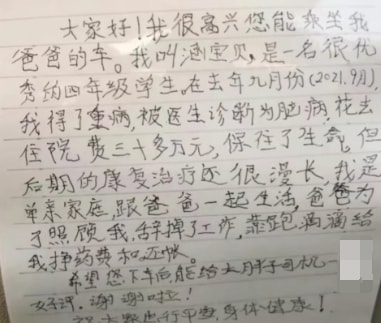 大家好！我很高兴您能乘坐我
爸爸的车。我叫涵宝贝，是一名很优
秀的四年级学生。在去年九月份(2021.9月)，
我得了重病，被医生诊断为脑病，花去
住院费三十多万元，保住了生命，但
后期的康复治疗还很漫长，我是
单亲家庭，跟爸爸一起生活，爸爸为
了照顾我，辞掉了工作，靠跑滴滴给
我挣药费和还帐。
希望您下车后能给大胖子司机一
好评，谢谢啦！
祝大家出行平安，身体健康！